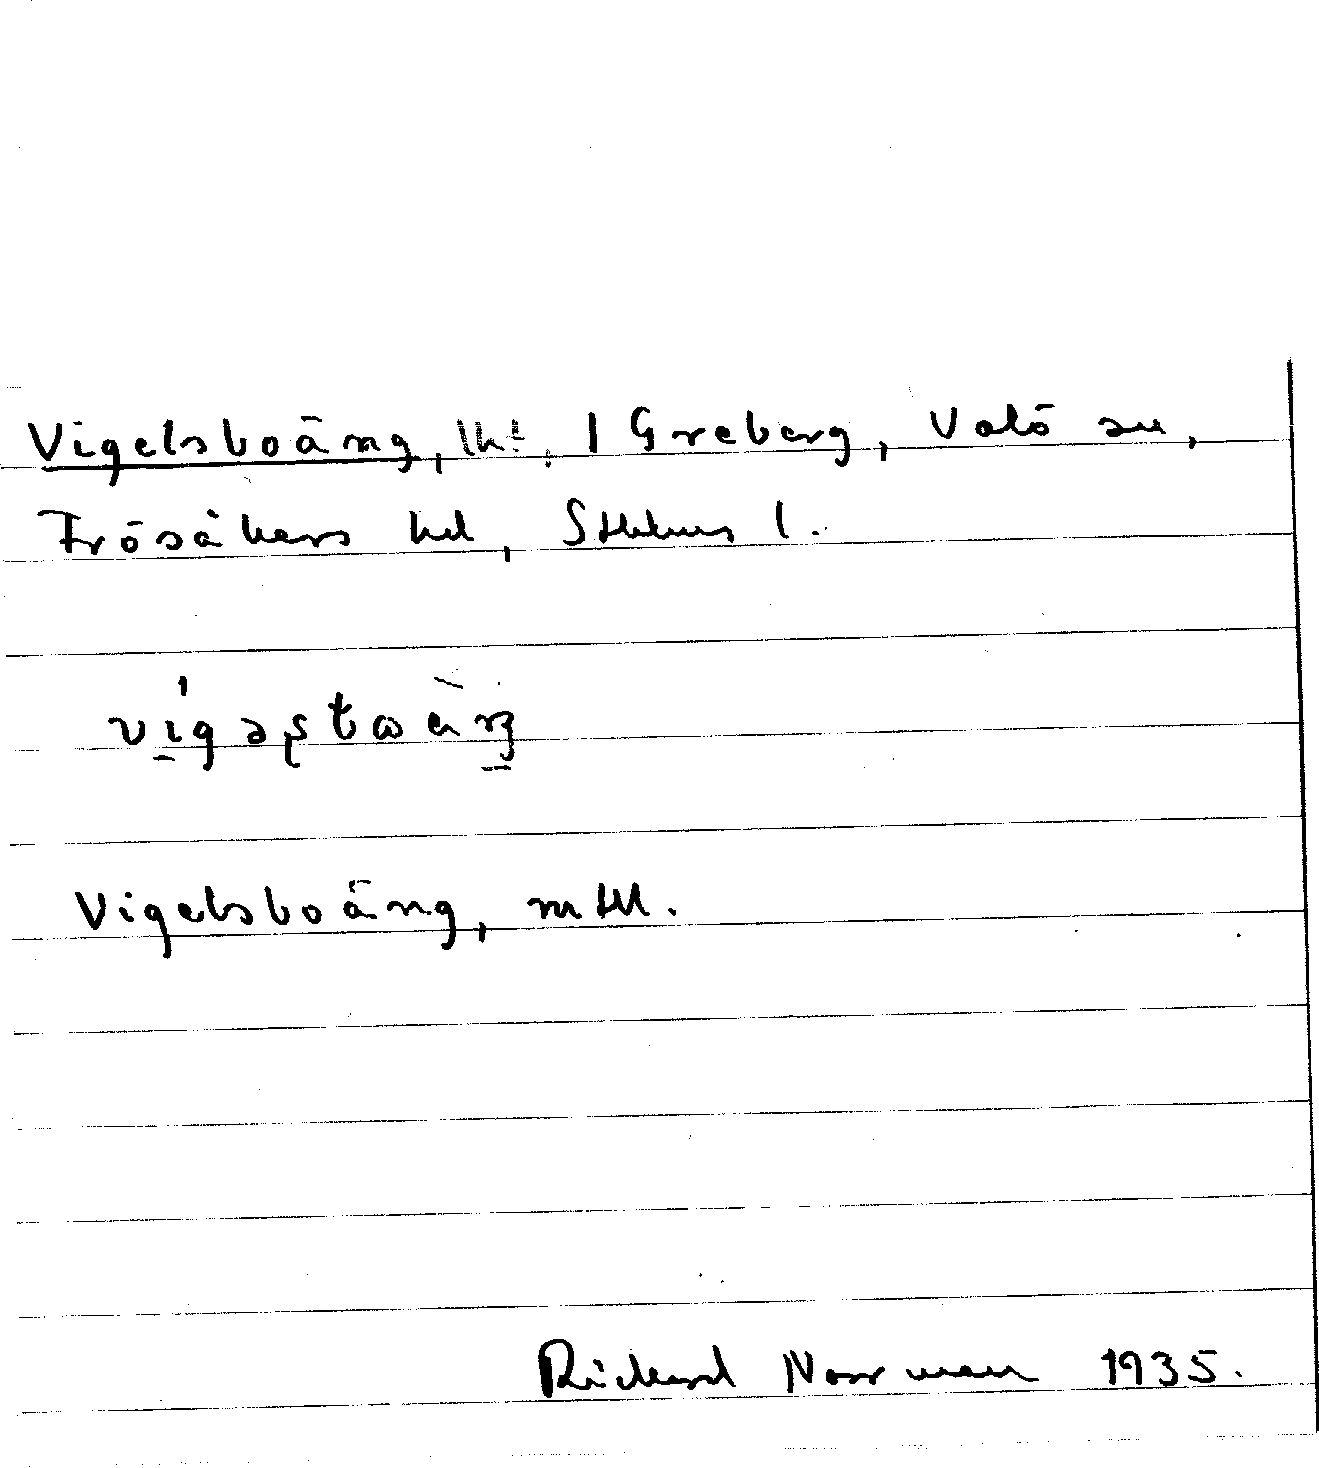 Vigelsboäng, lht. 1 Greberg, Valö sn,
Frösåkers hd, Sthlms l.
Vigelsboäng, mtll.
Rickard Norrman 1935.